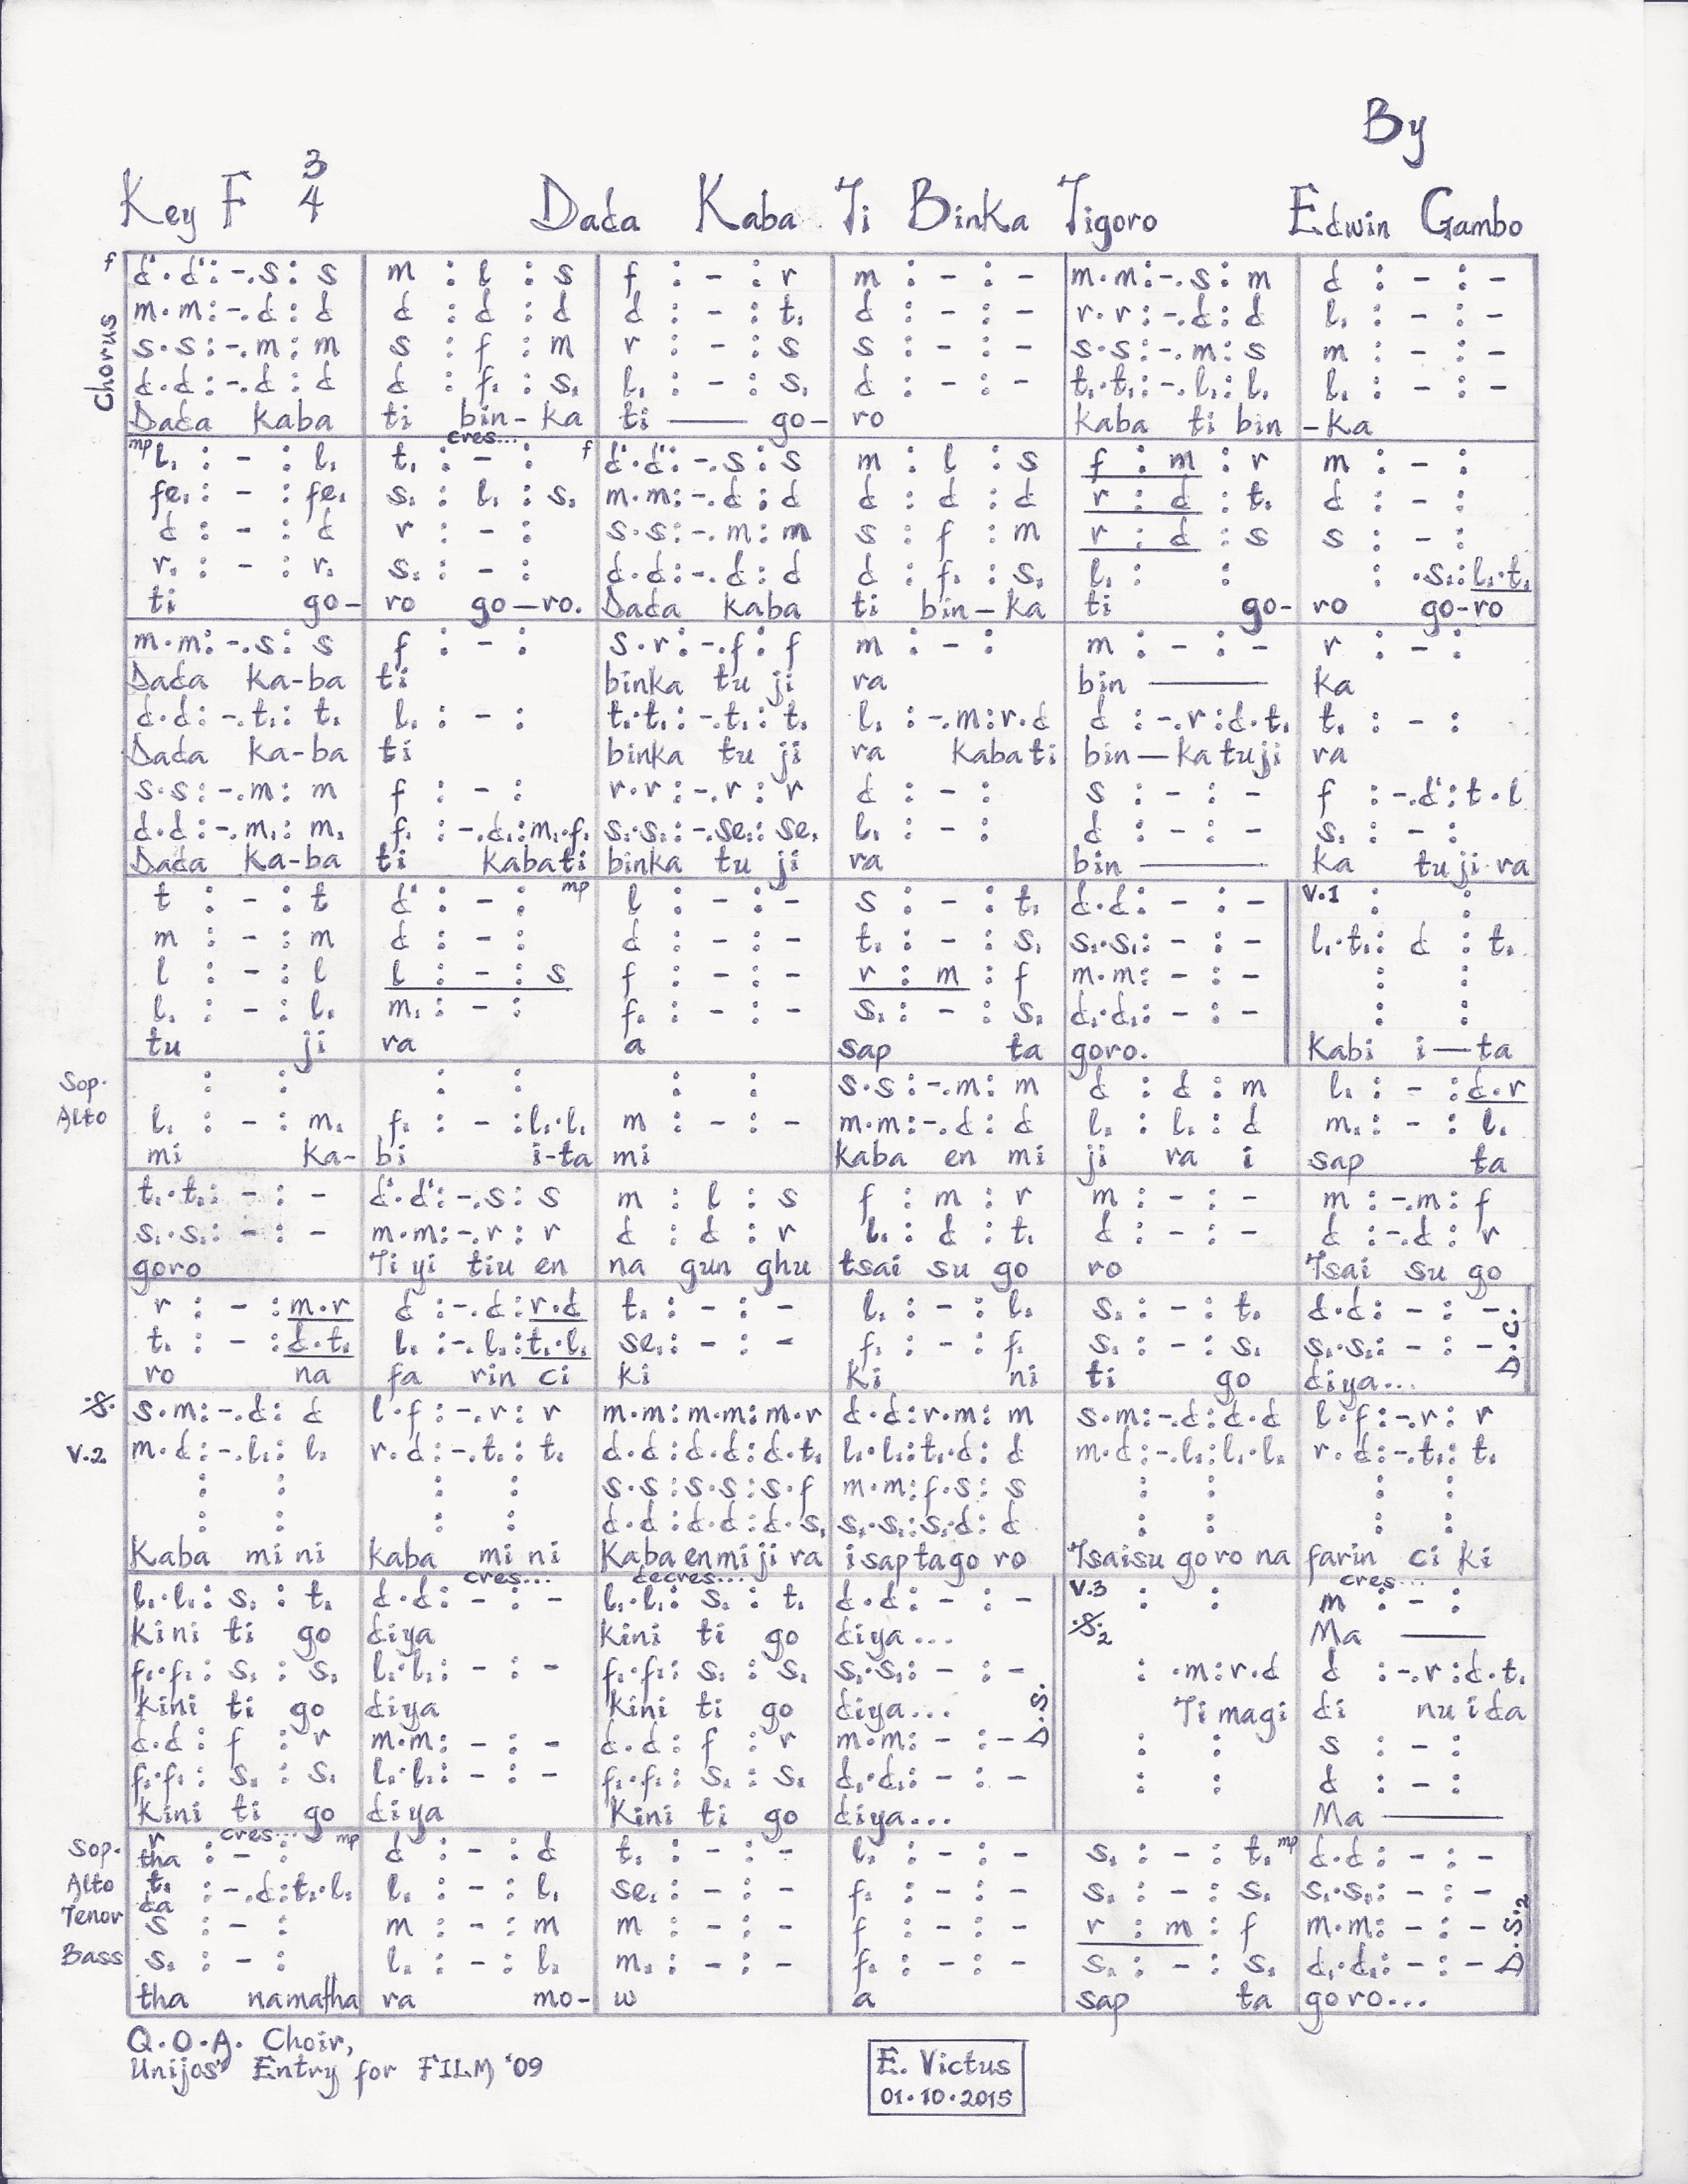 By
Key F 3/4 Dada Kaba Ti Binka Tigoro Edwin Gambo
Chorus
f d'.d':-.s:s | m:l:s | f:-:r | m:-:- | m.m:-.s:m | d:-:-
m.m:-.d:d | d:d:d | d:-:t, | d:-:- | r.r:-.d:d | l,:-:-
s.s:-.m:m | s:f:m | r:-:s | s:-:- | s.s:-.m:s | m:-:-
d.d:-.d:d | d:f,:s, | l,:-:s, | d:-:- | t,.t,:-.l,:l, | l,:-:-
Dada kaba | ti bin-ka | ti — go- | ro | kaba ti bin | -ka
mp l,:-:l, | cres... t,:-: | f d'.d':-.s:s | m:l:s | f:m:r | m:-:
fe,:-:fe, | s,:l,:s, | m.m:-.d:d | d:d:d | r:d:t, | d:-:
d:-:d | r:-: | s.s:-.m:m | s:f:m | r:d:s | s:-:
r,:-:r, | s,:-: | d.d:-.d:d | d:f,:s, | l,: : | :.s,:l,.t,
ti go- | ro go-ro. | Dada kaba | ti bin-ka | ti go- | ro go-ro
m.m:-.s:s | f:-: | s.r:-.f:f | m:-: | m:-:- | r:-:
Dada ka-ba | ti | binka tu ji | ra | bin — | ka
d.d:-.t,:t, | l,:-: | t,.t,:-.t,:t, | l,:-.m:r.d | d:-.r:d.t, | t,:-:
Dada ka-ba | ti | binka tu ji | ra kabati | bin-katuji | ra
s.s:-.m:m | f:-: | r.r:-.r:r | d:-: | s:-:- | f:-.d':t.l
d.d:-.m,:m, | f,:-.d,:m,.f, | s,.s,:-.se,:se, | l,:-: | d:-:- | s,:-:
Dada ka-ba | ti kabati | binka tu ji | ra | bin — | ka tu ji ra
t:-:t | d':-: | mp l:-:- | s:-:t, | d.d:-:- | V.1 : :
m:-:m | d:-: | d:-:- | t,:-:s, | s,.s,:-:- | l,.t,:d:t,
l:-:l | l:-:s | f:-:- | r:m:f | m.m:-:- | : :
l,:-:l, | m,:-: | f,:-:- | s,:-:s, | d,.d,:-:- | : :
tu ji | ra | a | sap ta | goro. | Kabi i-ta
Sop. : : | : : | : : | s.s:-.m:m | d:d:m | l,:-:d.r
Alto l,:-:m, | f,:-:l,.l, | m:-:- | m.m:-.d:d | l,:l,:d | m,:-:l,
mi ka- | bi i-ta | mi | kaba en mi | ji ra i | sap ta
t,.t,:-:- | d'.d':-.s:s | m:l:s | f:m:r | m:-:- | m:-.m:f
s,.s,:-:- | m.m:-.r:r | d:d:r | l,:d:t, | d:-:- | d:-.d:r
goro | Ti yi tiu en | na gun ghu | tsai su go | ro | Tsai su go
r:-:m.r | d:-.d:r.d | t,:-:- | l,:-:l, | s,:-:t, | d.d:-:-
t,:-:d.t, | l,:-.l,:t,.l, | se,:-:- | f,:-:f, | s,:-:s, | s,.s,:-:- D.C.
ro na | fa rin ci | ki | ki ni | ti go | diya...
.S. s.m:-.d:d | l.f:-.r:r | m.m:m.m:m.r | d.d:r.m:m | s.m:-.d:d.d | l.f:-.r:r
V.2 m.d:-.l,:l, | r.d:-.t,:t, | d.d:d.d:d.t, | l,.l,:t,.d:d | m.d:-.l,:l,.l, | r.d:-.t,:t,
: : | : : | s.s:s.s:s.f | m.m:f.s:s | : : | : :
: : | : : | d.d:d.d:d.s, | s,.s,:s,.d:d | : : | : :
Kaba mini | kaba mini | Kaba enmiji ra | i saptago ro | Tsaisu goro na | farin ci ki
l,.l,:s,:t, | cres... d.d:-:- | decres... l,.l,:s,:t, | d.d:-:- | V.3 : : | cres... m:-:
Kini ti go | diya | kini ti go | diya... | .S.2 | Ma —
f,.f,:s,:s, | l,.l,:-:- | f,.f,:s,:s, | s,.s,:-:- | :.m:r.d | d:-.r:d.t,
kini ti go | diya | kini ti go | diya... | Ti magi | di nuida
d.d:f:r | m.m:-:- | d.d:f:r | m.m:-:- D.S. | : : | s:-:
f,.f,:s,:s, | l,.l,:-:- | f,.f,:s,:s, | d,.d,:-:- | : : | d:-:
Kini ti go | diya | Kini ti go | diya... | | Ma —
Sop. r:-: cres... mp | d:-:d | t,:-:- | l,:-:- | s,:-:t, | mp d.d:-:-
tha
Alto t,:-.d:t,.l, | l,:-:l, | se,:-:- | f,:-:- | s,:-:s, | s,.s,:-:-
da
Tenor s:-: | m:-:m | m:-:- | f:-:- | r:m:f | m.m:-:- D.S.2
Bass s,:-: | l,:-:l, | m,:-:- | f,:-:- | s,:-:s, | d,.d,:-:-
tha namatha | ra mo- | w | a | sap ta | goro...
Q.O.A. Choir,
Unijos' Entry for FILM '09
E. Victus
01.10.2015